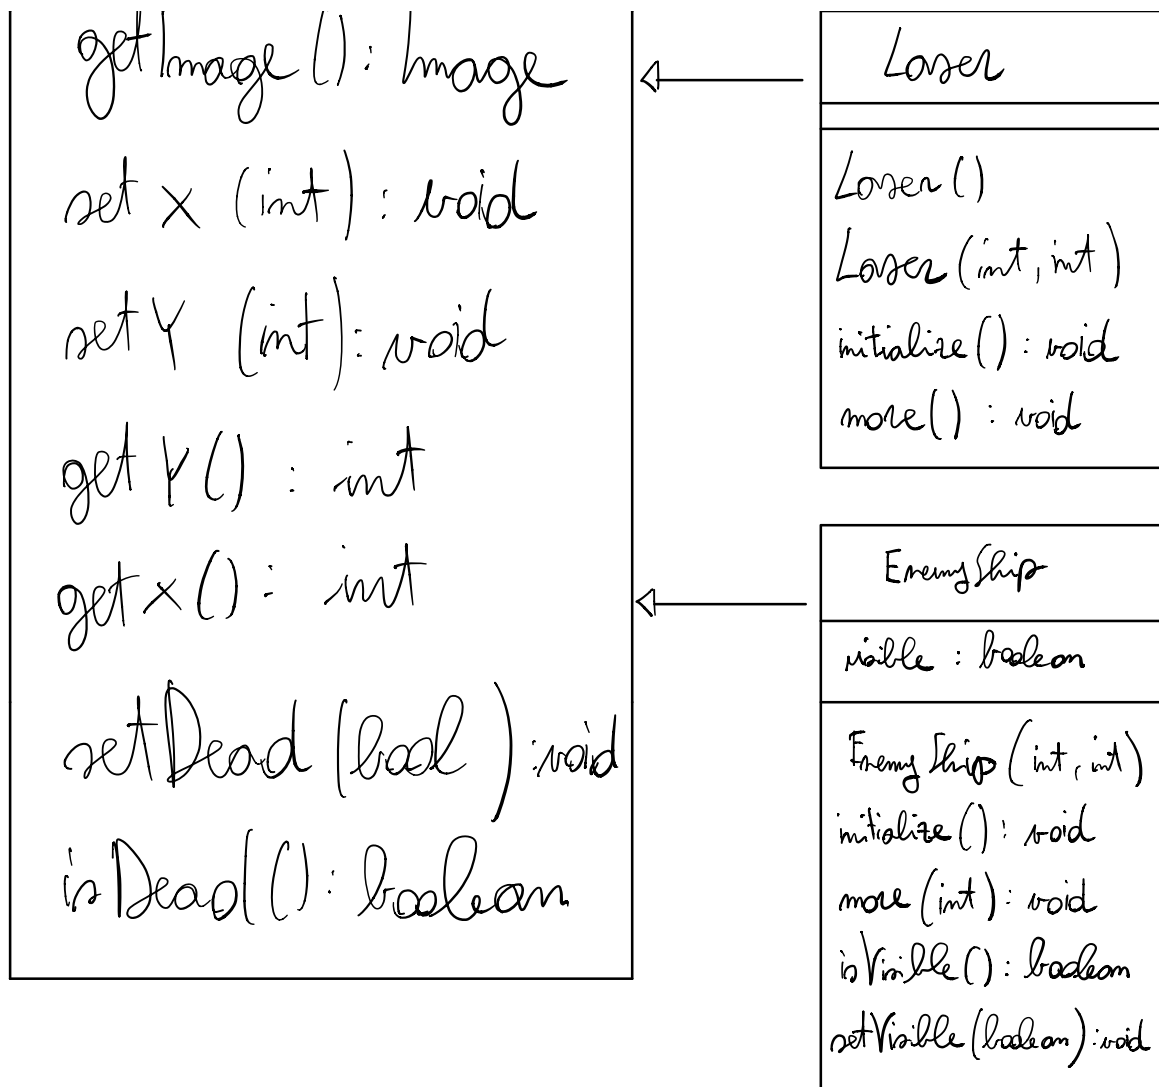 getImage () : Image
set X (int) : void
set Y (int) : void
get Y () : int
get X () : int
setDead (bool ) : void
isDead () : boolean
Laser
Laser ()
Laser (int, int)
initialize () : void
move () : void
EnemyShip
visible : boolean
EnemyShip (int, int)
initialize () : void
move (int) : void
isVisible () : boolean
setVisible (boolean) : void